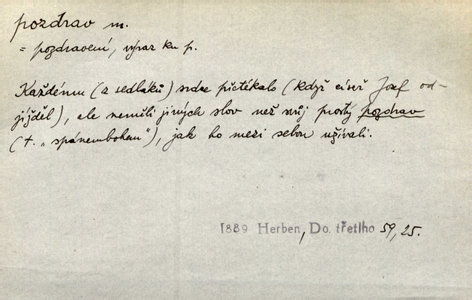 pozdrav m.
= pozdravení, výraz ku p.
Každému (z sedláků) srdce přetékalo (když císař Josef od-
jížděl), ale neměli jiných slov než svůj prostý pozdrav
(t. „spánembohem"), jak ho mezi sebou užívali.
1889 Herben, Do třetího 59, 25.